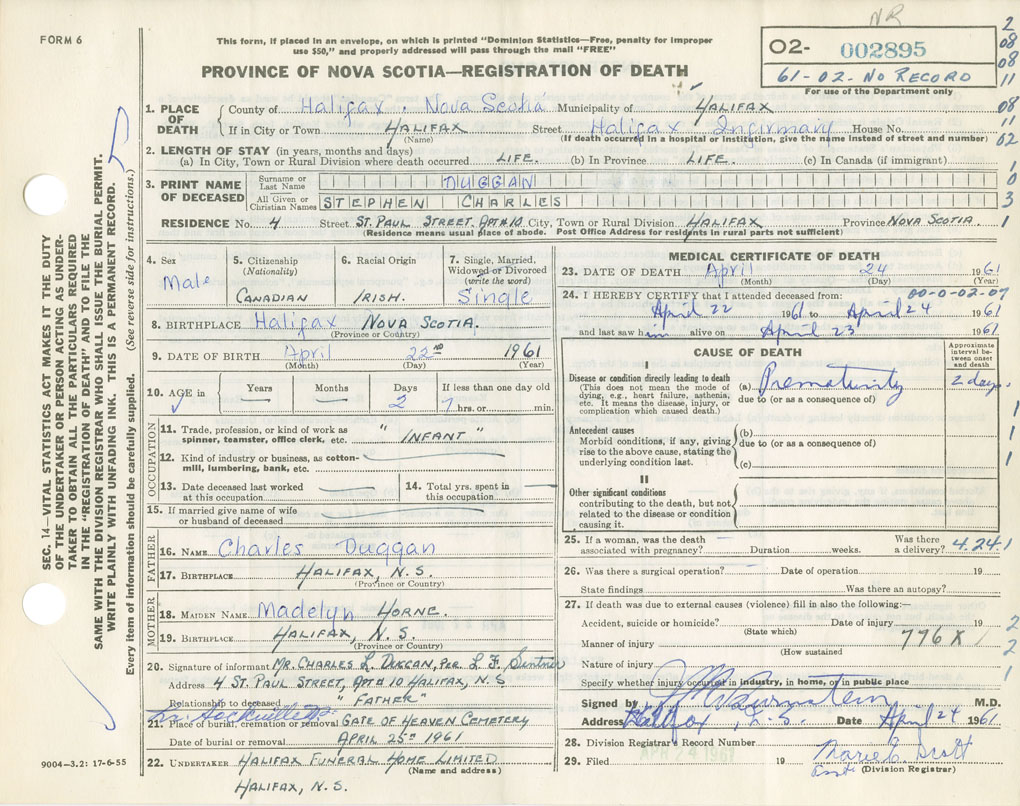 NR
FORM 6
This form, if placed in an envelope, on which is printed "Dominion Statistics—Free, penalty for improper
use $50," and properly addressed will pass through the mail "FREE"
PROVINCE OF NOVA SCOTIA—REGISTRATION OF DEATH
O2- 002895
61-02- No RECORD
For use of the Department only
2
08
08
11
08
11
02
1. PLACE OF DEATH County of Halifax, Nova Scotia Municipality of HALIFAX
If in City or Town HALIFAX Street Halifax Infirmary House No.
(Name) (If death occurred in a hospital or institution, give the name instead of street and number)
2. LENGTH OF STAY (in years, months and days)
(a) In City, Town or Rural Division where death occurred LIFE. (b) In Province LIFE. (c) In Canada (if immigrant)
3. PRINT NAME OF DECEASED Surname or Last Name DUGGAN
All Given or Christian Names STEPHEN CHARLES
RESIDENCE No. 4 Street ST. PAUL STREET. APT # 10 City, Town or Rural Division HALIFAX Province NOVA SCOTIA
(Residence means usual place of abode. Post Office Address for residents in rural parts not sufficient)
1
0
3
1
SEC. 14—VITAL STATISTICS ACT MAKES IT THE DUTY
OF THE UNDERTAKER OR PERSON ACTING AS UNDER-
TAKER TO OBTAIN ALL THE PARTICULARS REQUIRED
IN THE "REGISTRATION OF DEATH" AND TO FILE THE
SAME WITH THE DIVISION REGISTRAR WHO SHALL ISSUE THE BURIAL PERMIT.
WRITE PLAINLY WITH UNFADING INK. THIS IS A PERMANENT RECORD.
Every item of information should be carefully supplied. (See reverse side for instructions.)
4. Sex Male
5. Citizenship (Nationality) CANADIAN
6. Racial Origin IRISH.
7. Single, Married, Widowed or Divorced (write the word) Single
8. BIRTHPLACE Halifax NOVA SCOTIA.
(Province or Country)
9. DATE OF BIRTH April 22ND 1961
(Month) (Day) (Year)
10. AGE in Years Months Days 2 If less than one day old hrs. or min.
OCCUPATION
11. Trade, profession, or kind of work as spinner, teamster, office clerk, etc. "INFANT"
12. Kind of industry or business, as cotton-mill, lumbering, bank, etc.
13. Date deceased last worked at this occupation
14. Total yrs. spent in this occupation
15. If married give name of wife or husband of deceased
FATHER
16. NAME Charles Duggan
17. BIRTHPLACE HALIFAX, N.S.
(Province or Country)
MOTHER
18. MAIDEN NAME Madelyn HORNE.
19. BIRTHPLACE HALIFAX, N.S.
(Province or Country)
20. Signature of informant MR. CHARLES L. DUGGAN, PER L. F.
Address 4 ST. PAUL STREET, APT # 10 HALIFAX, N.S
Relationship to deceased "FATHER"
21. Place of burial, cremation or removal GATE OF HEAVEN CEMETERY
Date of burial or removal APRIL 25TH 1961
22. UNDERTAKER HALIFAX FUNERAL HOME LIMITED
(Name and address)
HALIFAX, N.S.
9004-3.2: 17-6-55
MEDICAL CERTIFICATE OF DEATH
23. DATE OF DEATH April 24 1961
(Month) (Day) (Year)
24. I HEREBY CERTIFY that I attended deceased from: 00-0-02-07
April 22 1961 to April 24 1961
and last saw him alive on April 23 1961
CAUSE OF DEATH
Approximate interval between onset and death
I
Disease or condition directly leading to death
(This does not mean the mode of dying, e.g., heart failure, asthenia, etc. It means the disease, injury, or complication which caused death.)
(a) Prematurity 2 days.
due to (or as a consequence of)
Antecedent causes
Morbid conditions, if any, giving rise to the above cause, stating the underlying condition last.
(b)
due to (or as a consequence of)
(c)
II
Other significant conditions
contributing to the death, but not related to the disease or condition causing it.
1
1
1
25. If a woman, was the death associated with pregnancy? Duration weeks. Was there a delivery? 4.24.1
26. Was there a surgical operation? Date of operation 19
State findings Was there an autopsy?
27. If death was due to external causes (violence) fill in also the following:—
Accident, suicide or homicide? Date of injury 19
(State which)
Manner of injury 776 X
(How sustained
Nature of injury
Specify whether injury occurred in industry, in home, or in public place
2
2
1
Signed by M.D.
Address Halifax, N.S. Date April 24 1961
28. Division Registrar's Record Number
APR 24 1961
29. Filed 19 Marie C. Scott
(Division Registrar)